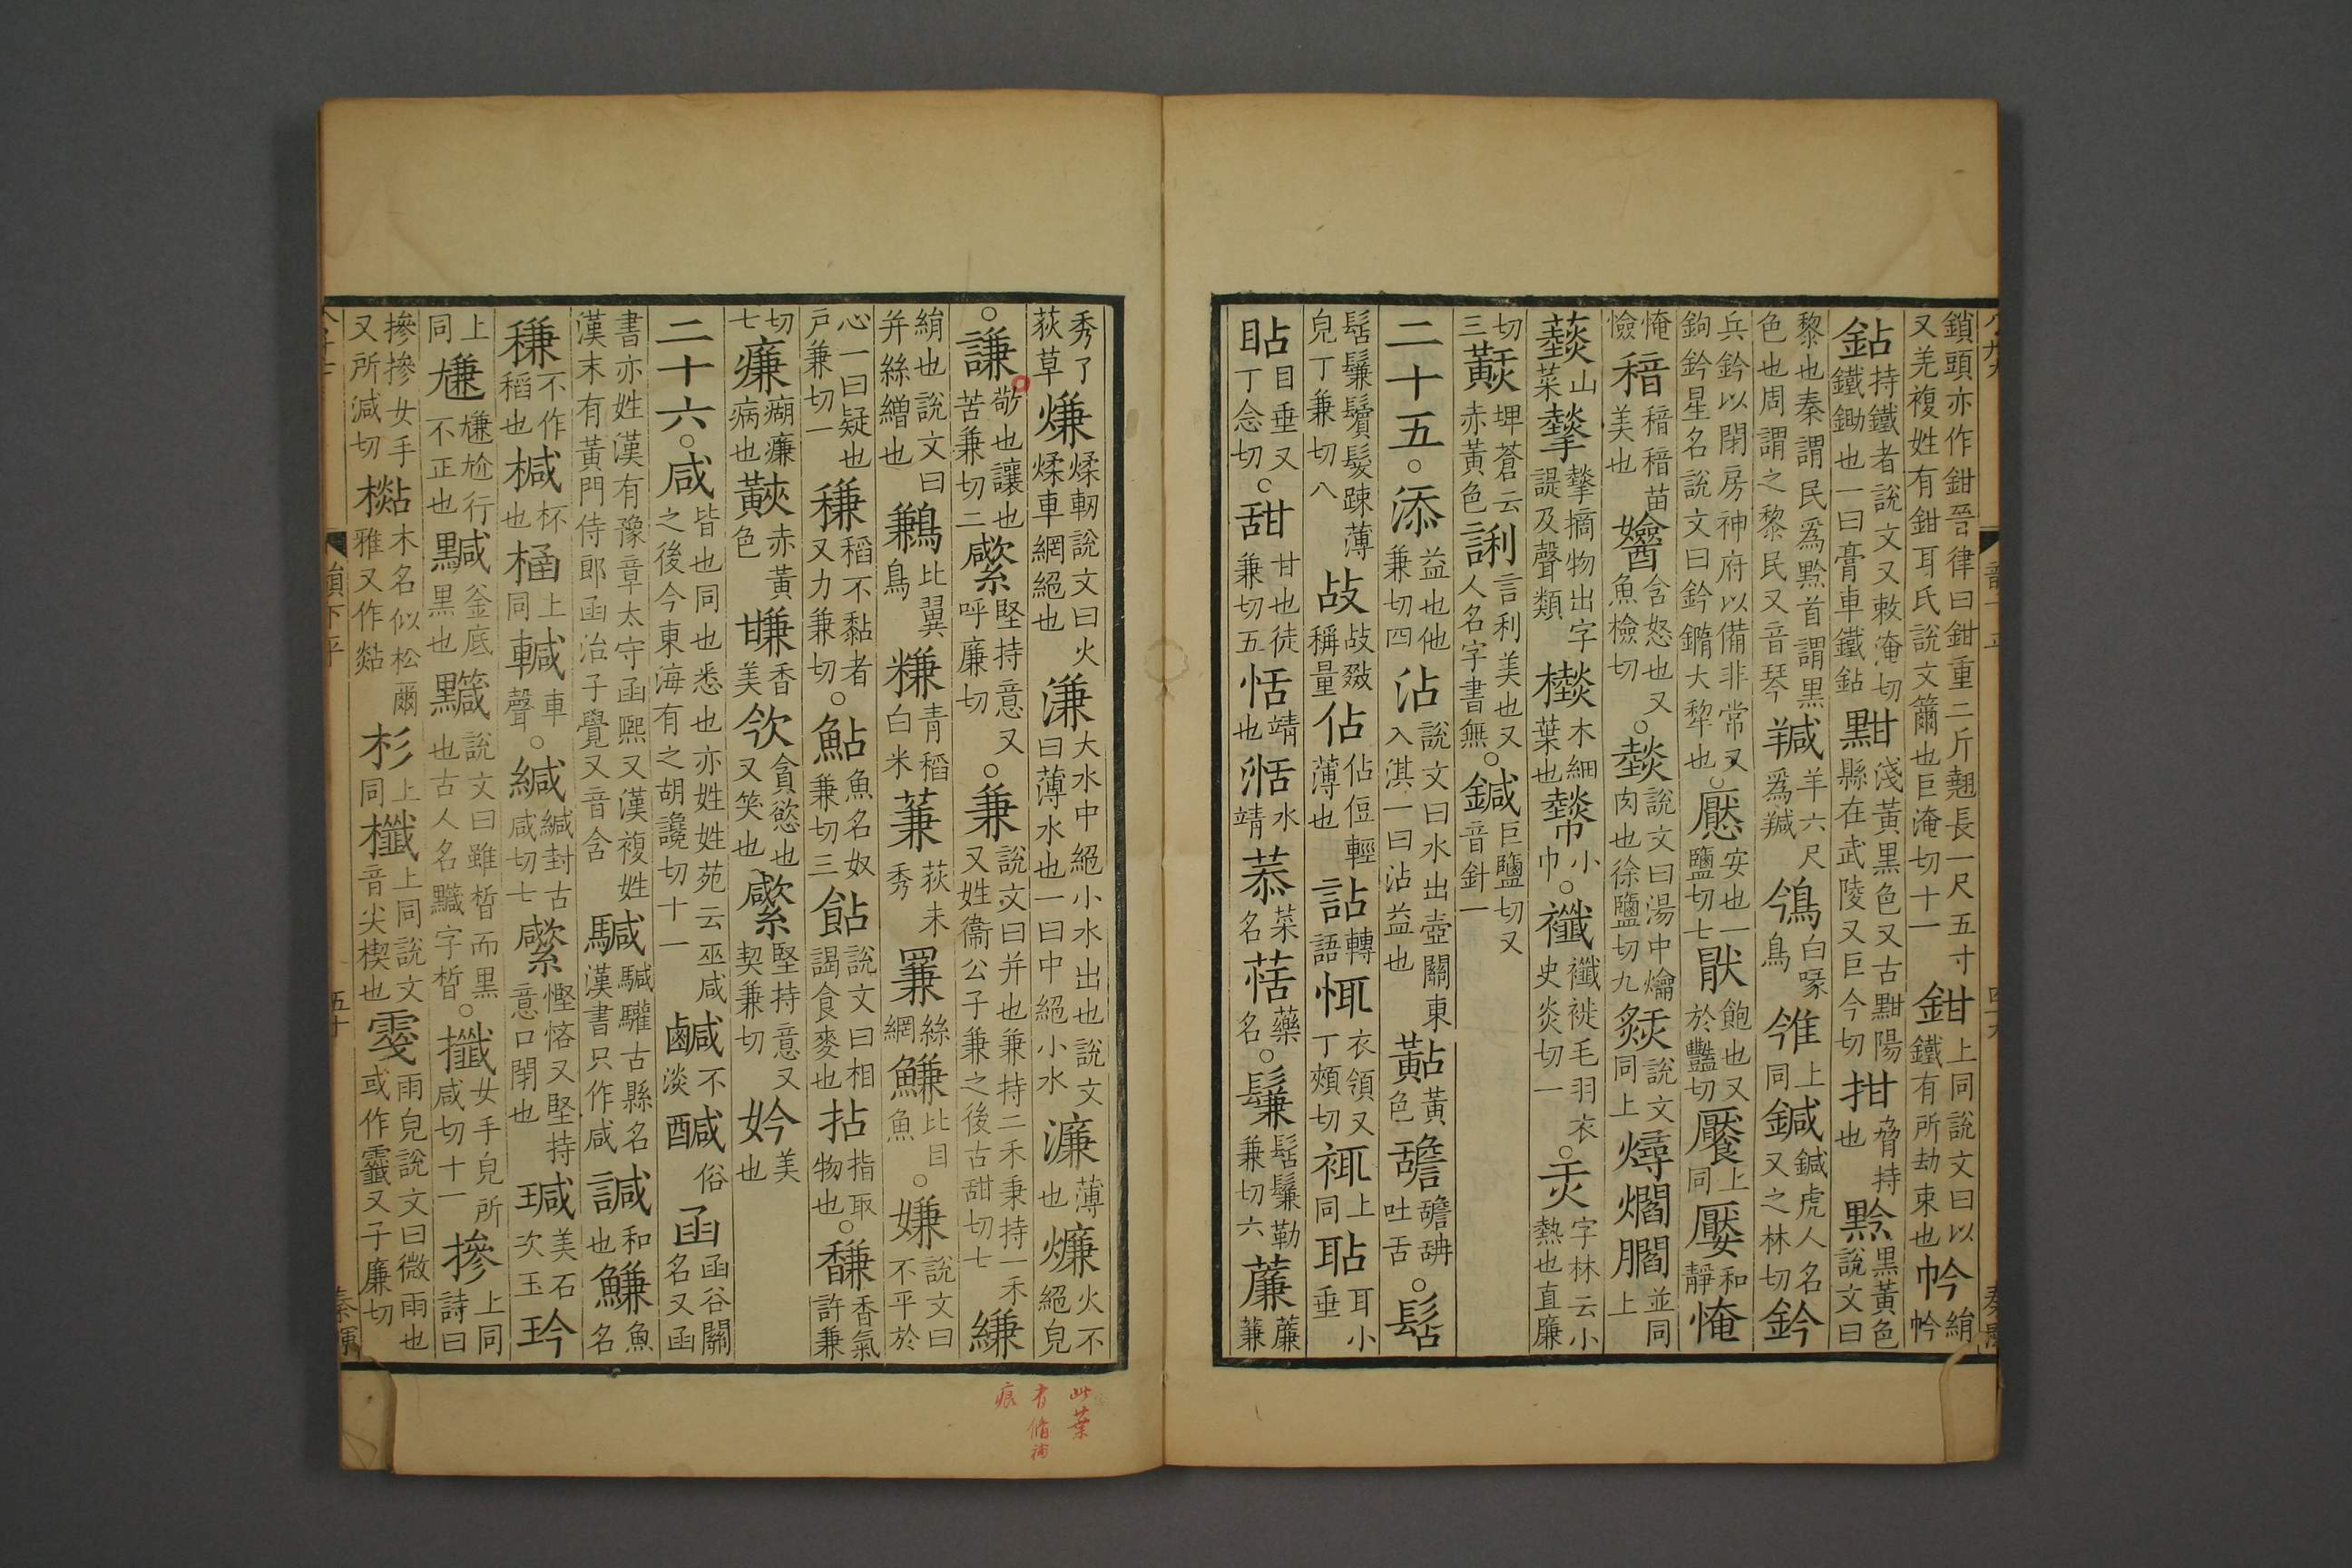 鎖頭亦作鉗晉律曰鉗重二斤翹長一尺五寸又羌複姓有鉗耳氏說文籋也巨淹切十一鉗上同說文曰以鐵有所劫束也㡆絹㡆
鉆持鐵者說文又敕淹切鐵鋤也一曰膏車鐵鉆黚淺黃黑色又古黚陽縣在武陵又巨今切拑脅持也黔黑黃色說文曰
黎也秦謂民爲黔首謂黑色也周謂之黎民又音琴羬羊六尺爲羬鳹白喙鳥雂上同鍼鍼虎人名又之林切鈐
兵鈐以閉房神府以備非常又鉤鈐星名說文曰鈐䥯大犂也○懕安也一鹽切七猒飽也又於豔切饜上同嬮和靜㤿
㤿憸稖稖稖苗美也㜝含怒也又魚檢切○燅說文曰湯中爚肉也徐鹽切九㶣說文同上燖爓膶並同上
䕭山菜㨻㨻摘物出字諟及聲類橪木細葉也㡓小巾○襳襳褷毛羽衣史炎切一○灻字林云小熱也直廉
切三䵍埤蒼云赤黃色䛶言利美也又人名字書無○鍼巨鹽切又音針一
二十五○添益也他兼切四沾說文曰水出壺關東入淇一曰沾益也黇黃色䧸䧸䑙吐舌○髻
髻鬑鬢髮踈薄皃丁兼切八敁敁敠稱量佔佔侸輕薄也詀轉語㤴衣領又丁頰切䘚上同聑耳小垂
貼目垂又丁念切○甜甘也徒兼切五恬靖也湉水靖菾菜名萿藥名○鬑髻鬑勒兼切六薕薕蒹
秀了荻草熑煣軔說文曰火煣車網絕也溓大水中絕小水出也說文曰薄水也一曰中絕小水濂薄也㷰火不絕皃
○謙敬也讓也苦兼切二㰸堅持意又呼廉切○兼說文曰并也兼持二禾秉持一禾又姓衞公子兼之後古甜切七縑
絹也說文曰并絲繒也鶼比翼鳥䊠青稻白米蒹荻未秀䍜絲網鰜比目魚○嫌說文曰不平於
心一曰疑也戸兼切一稴稻不黏者又力兼切○鮎魚名奴兼切三䬯說文曰相謁食麥也拈指取物也○馦香氣許兼
切七㾾㾰㾾病也䵌赤黃色䊜香美欦貪慾也又笑也㰸堅持意又契兼切妗美也
二十六○咸皆也同也悉也亦姓姓苑云巫咸之後今東海有之胡讒切十一鹹不淡醎俗函函谷關名又函
書亦姓漢有豫章太守函熙又漢複姓漢末有黃門侍郎函治子覺又音含䮻䮻驩古縣名漢書只作咸諴和也鰜魚名
稴不作稻也椷杯也㮀上同䡡車聲○緘緘封古咸切七㰸慳悋又堅持意口閉也瑊美石次玉玪
上同尲尲尬行不正也黬釜底黑也䵴說文曰雖晳而黑也古人名䵴字晳○攕女手皃所咸切十一摻上同詩曰
摻摻女手又所減切㯡木名似松爾雅又作煔杉上同櫼上同說文音尖楔也霎雨皃說文曰微雨也或作䨘又子廉切
此葉
有脩補
痕